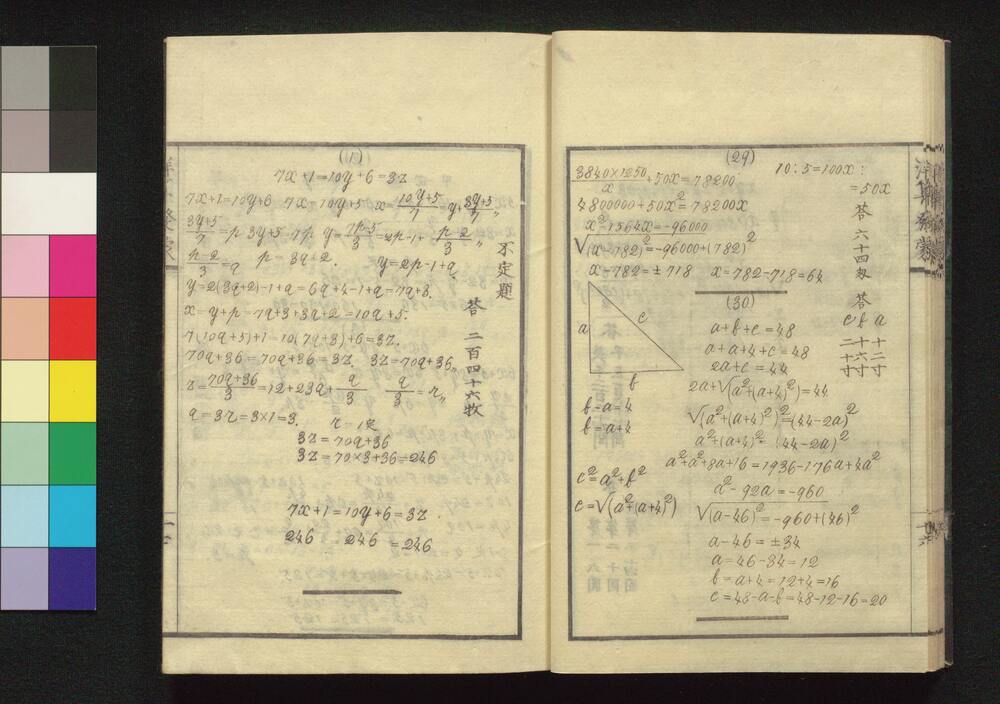 (29)
3840×1250/x +50x=78200 10:5=100x:
=50x
4800000+50x²=78200x
x²-1564x=-96000
√(x-782)²=-96000+(782)²
x-782=±718 x=782-718=64
答 六十四
(30)
答
a 十二寸
b 十六寸
c 二十寸
a
c
b
b-a=4
b=a+4
c²=a²+b²
c=√(a²+(a+4)²)
a+b+c=48
a+a+4+c=48
2a+c=44
2a+√(a²+(a+4)²)=44
√(a²+(a+4)²)²=(44-2a)²
a²+(a+4)²=(44-2a)²
a²+a²+8a+16=1936-176a+4a²
a²-92a=-960
√(a-46)²=-960+(46)²
a-46=±34
a=46-34=12
b=a+4=12+4=16
c=48-a-b=48-12-16=20
不定題
(1)
7x+1=10y+6=3z
7x+1=10y+6 7x=10y+5 x=10y+5/7=y+3y+5/7〃
3y+5/7=p 3y+5=7p y=7p-5/3=2p-1+p-2/3〃
p-2/3=q p=3q+2. y=2p-1+q
y=2(3q+2)-1+q=6q+4-1+q=7q+3.
x=y+p=7q+3+3q+2=10q+5.
7(10q+5)+1=10(7q+3)+6=3z.
70q+36=70q+36=3z. 3z=70q+36〃
z=70q+36/3=12+23q+q/3 q/3=r〃
q=3r=3×1=3. r=1定
3z=70q+36
3z=70×3+36=246
7x+1=10y+6=3z.
246 = 246 = 246
答 二百四十六牧